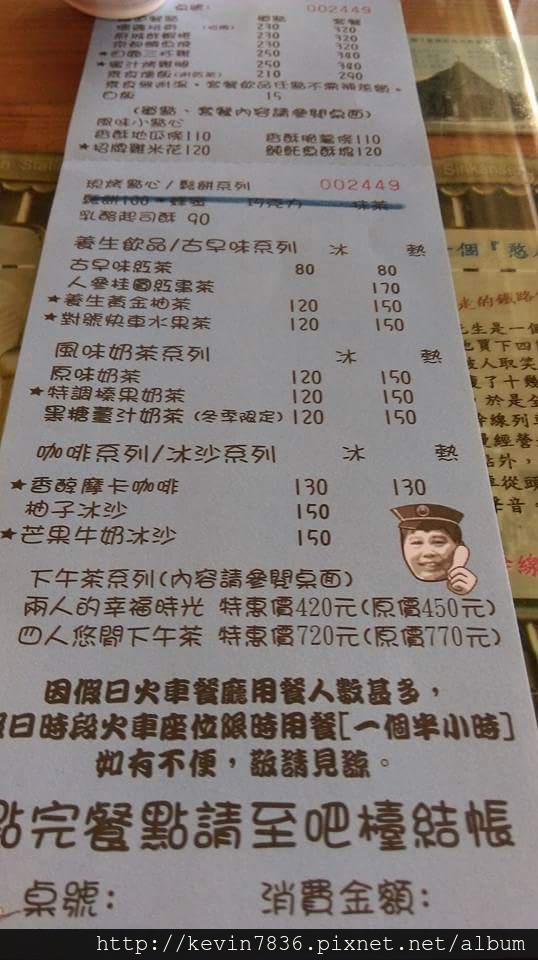 桌號: 002449
單點 套餐
230 320
230 320
230 320
250 340
★蜜汁烤雞腿 250 340
210 290
白飯 15
(單點、套餐內容請參閱桌面)
風味小點心
香酥地瓜條110 香酥脆薯條110
★招牌雞米花120 魷魚酥120
現烤點心/鬆餅系列 002449
鬆餅100 蜂蜜 巧克力 抹茶
乳酪起司酥 90
養生飲品/古早味系列 冰 熱
古早味紅茶 80 80
人參桂圓紅棗茶 170
★養生黃金柚茶 120 150
★對號快車水果茶 120 150
風味奶茶系列 冰 熱
原味奶茶 120 150
★特調榛果奶茶 120 150
黑糖薑汁奶茶(冬季限定) 120 150
咖啡系列/冰沙系列 冰 熱
★香醇摩卡咖啡 130 130
柚子冰沙 150
★芒果牛奶冰沙 150
下午茶系列(內容請參閱桌面)
兩人的幸福時光 特惠價420元(原價450元)
四人悠閒下午茶 特惠價720元(原價770元)
因假日火車餐廳用餐人數甚多，
假日時段火車座位限時用餐[一個半小時]
如有不便，敬請見諒。
點完餐點請至吧檯結帳
桌號: 消費金額:
一個『憨
光的鐵路
先生是一個
也買下四
被人取笑
了十幾
，於是金
幹線列車
經營
點外，
車從頭
聲音，
幹線
http://kevin7836.pixnet.net/album